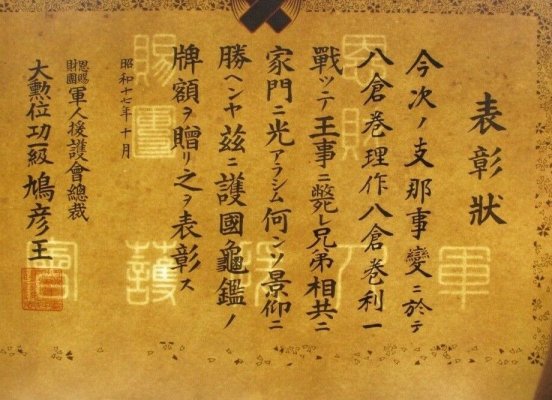 表彰状
今次ノ支那事變ニ於テ
八倉巻理作八倉巻利一
戰ツテ王事ニ斃レ兄弟相共ニ
家門ニ光アラシム何ンソ景仰ニ
勝ヘンヤ茲ニ護國龜鑑ノ
牌額ヲ贈リ之ヲ表彰ス
昭和十七年十月
恩賜財團軍人援護會總裁
大勲位功一級鳩彦王
恩賜
財團
軍人援護會